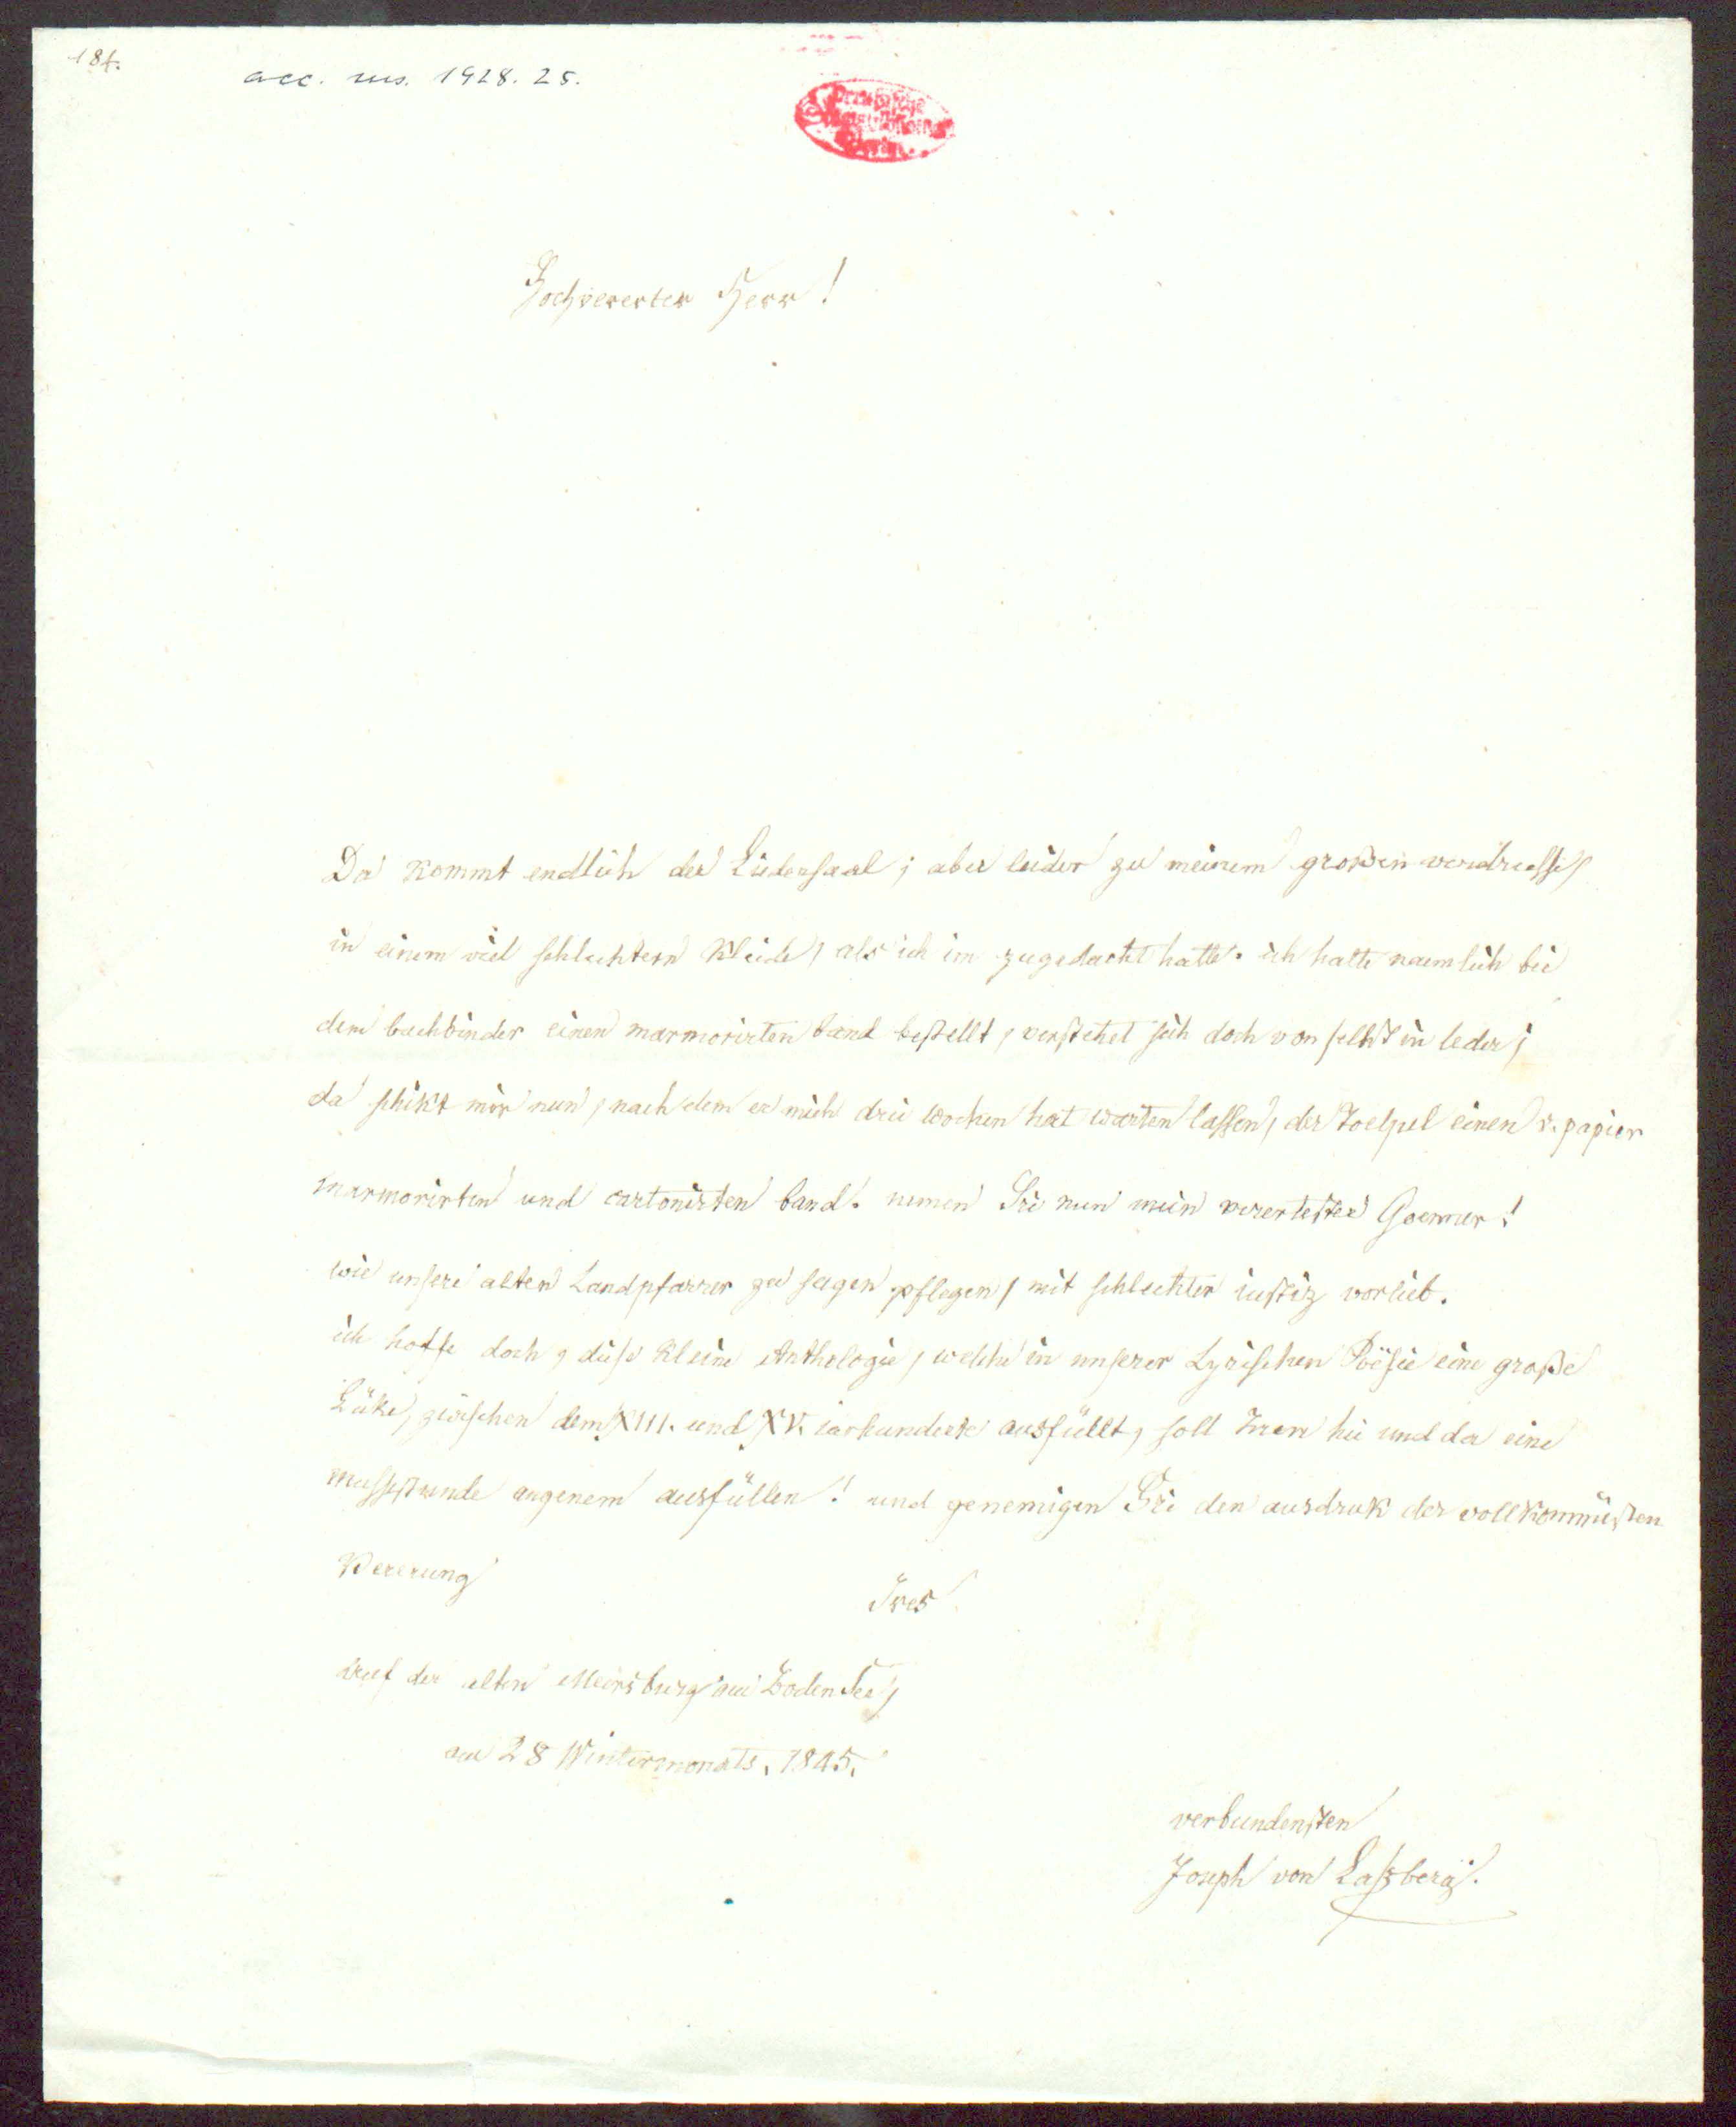 184.
acc. ms. 1928. 25.
Preußische
Staatsbibliothek
Berlin
Hochvererter Herr!
Da kommt endlich der Liedersaal; aber leider zu meinem großen verdrusse,
in einem viel schlechtern Kleide, als ich im zugedacht hatte. ich hatte naemlich bei
dem buchbinder einen marmorirten band bestellt, verstehet sich doch von selbst in leder;
da schikt mir nun, nach dem er mich drei wochen hat warten lassen, der Toelpel einen v. papier
marmorirten und cartonirten band. nemen Sie nun mein verertester Goenner!
wie unsere alten Landpfarrer zu sagen pflegen, mit schlechter iustiz vorlieb.
ich hoffe doch, diese kleine Anthologie, welche in unserer Lyrischen Poësie eine große
Lüke, zwischen dem XIII. und XV. iarhundert ausfüllt, soll Inen hie und da eine
mussestunde angenem ausfüllen! und genemigen Sie den ausdruk der vollkommensten
Vererung
Ires
auf der alten Meersburg am Bodensee,
am 28 Wintermonats. 1845.
verbundensten
Joseph von Laßberg.